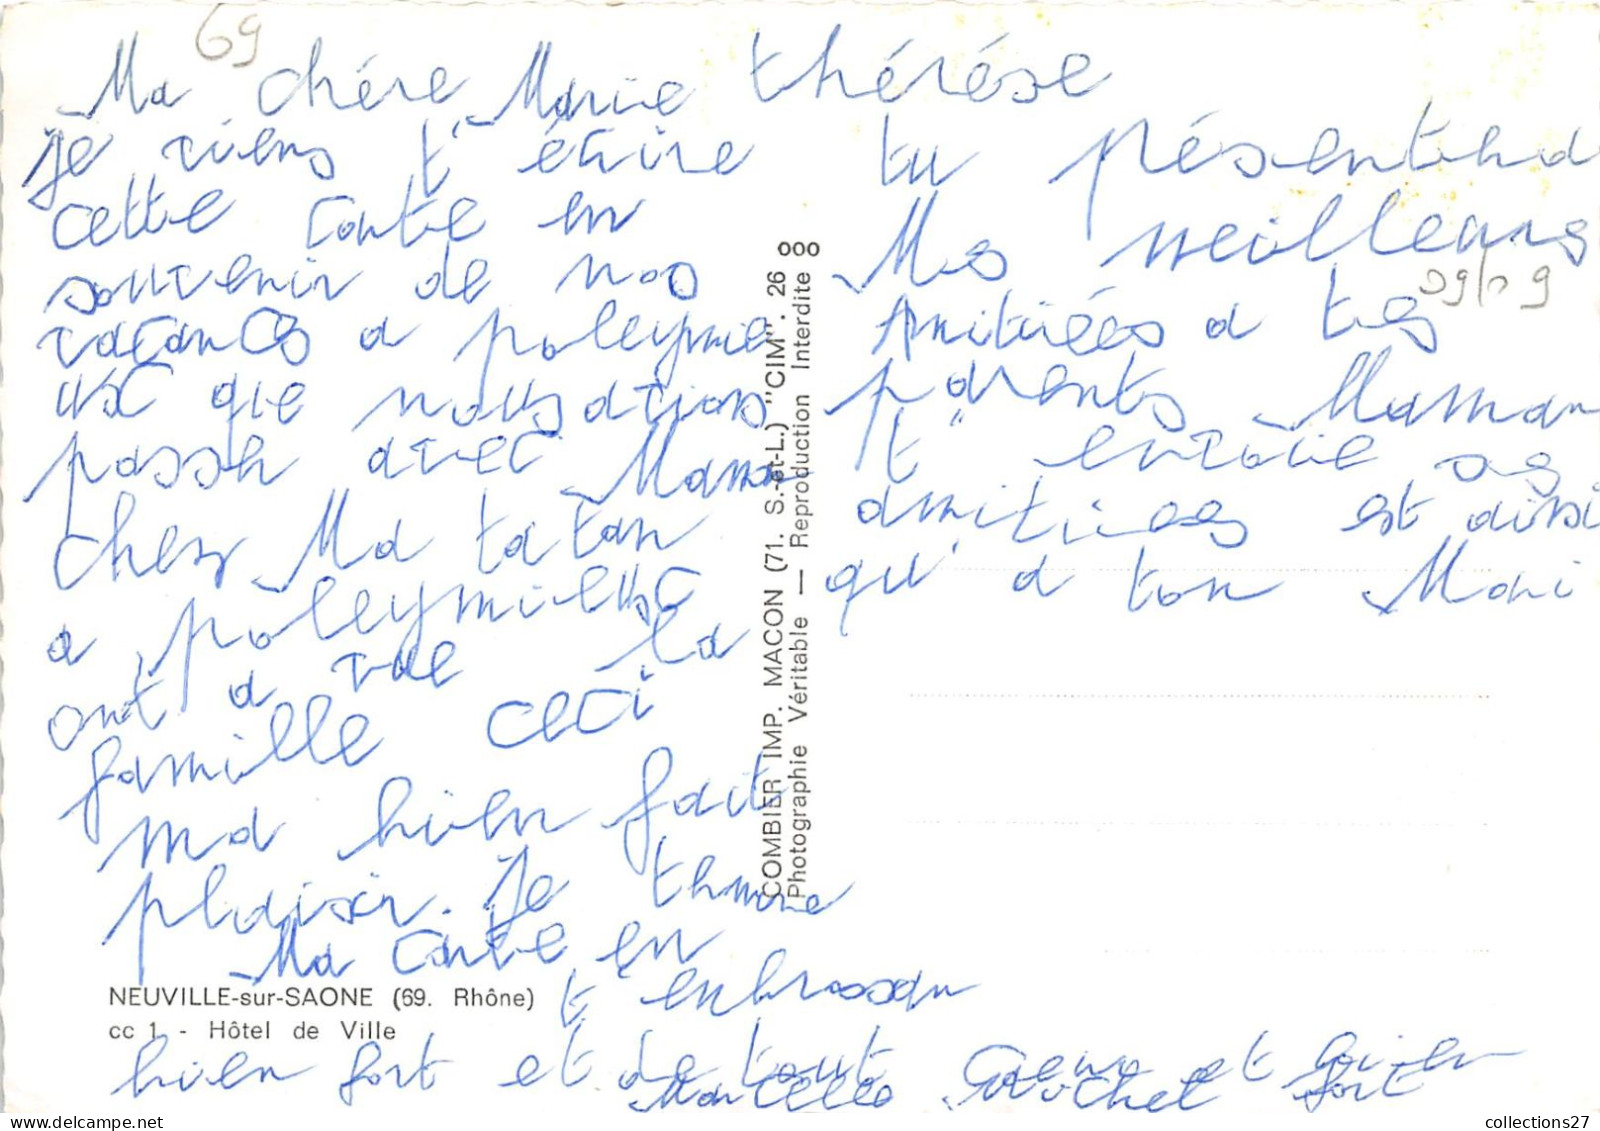 69
Ma chére Marie thérése
je viens t'écrire
cette carte en
souvenir de nos
vacances a poleymie
que nous avions
passh avec Maman
chez Ma tatan
a poleymieux
ont a vue la
famille ceci
ma bien fait
plaisir. Je
Ma carte en
t'enbrassan
bien fort et de tout Coeur et bien
Marcelle Michel fort
tu présentend
Mes meilleurs
Amitiées a tes
parents Maman
t'envoie ses
amitiées est ainsi
qu'a ton Mari
09/09
NEUVILLE-sur-SAONE (69. Rhône)
cc 1 - Hôtel de Ville
COMBIER IMP. MACON (71. S.-et-L.) "CIM". 26 ooo
Photographie Véritable — Reproduction Interdite
collections27